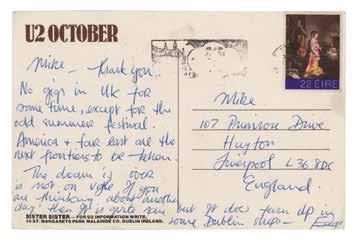 U2 OCTOBER
Mike – thank you.
No gigs in UK for
some time, except for the
odd summer festival.
America + far east are the
next frontiers to be taken.
The dream is over
is not on vote if you
are thinking about another
day then it is quite rare but it does turn up in
some Dublin shops –
SISTER SISTER – FOR U2 INFORMATION WRITE:
10 ST. MARGARETS PARK MALAHIDE CO. DUBLIN IRELAND.
22 ÉIRE
Mike
107 Primrose Drive
Huyton
Liverpool L36 8DS
England